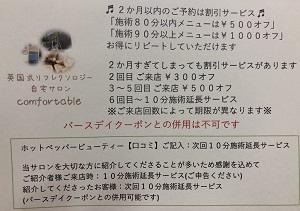 ♬２か月以内のご予約は割引サービス♬
「施術８０分以内メニューは￥５００オフ」
「施術９０分以上メニューは￥１０００オフ」
お得にリピートしていただけます
英国式リフレクソロジー
自宅サロン
comfortable
２か月すぎてしまっても割引サービスがあります
２回目ご来店￥３００オフ
３～５回目ご来店￥５００オフ
６回目～１０分施術延長サービス
※ご来店回数によって期限が異なります※
バースデイクーポンとの併用は不可です
ホットペッパービューティー【口コミ】ご記入：次回１０分施術延長サービス
当サロンを大切な方に紹介してくださることが多いため感謝を込めて
ご紹介者様ご来店時：１０分施術延長サービス(ご申告ください)
紹介してくださったお客様：次回１０分施術延長サービス
(バースデイクーポンとの併用可能です)